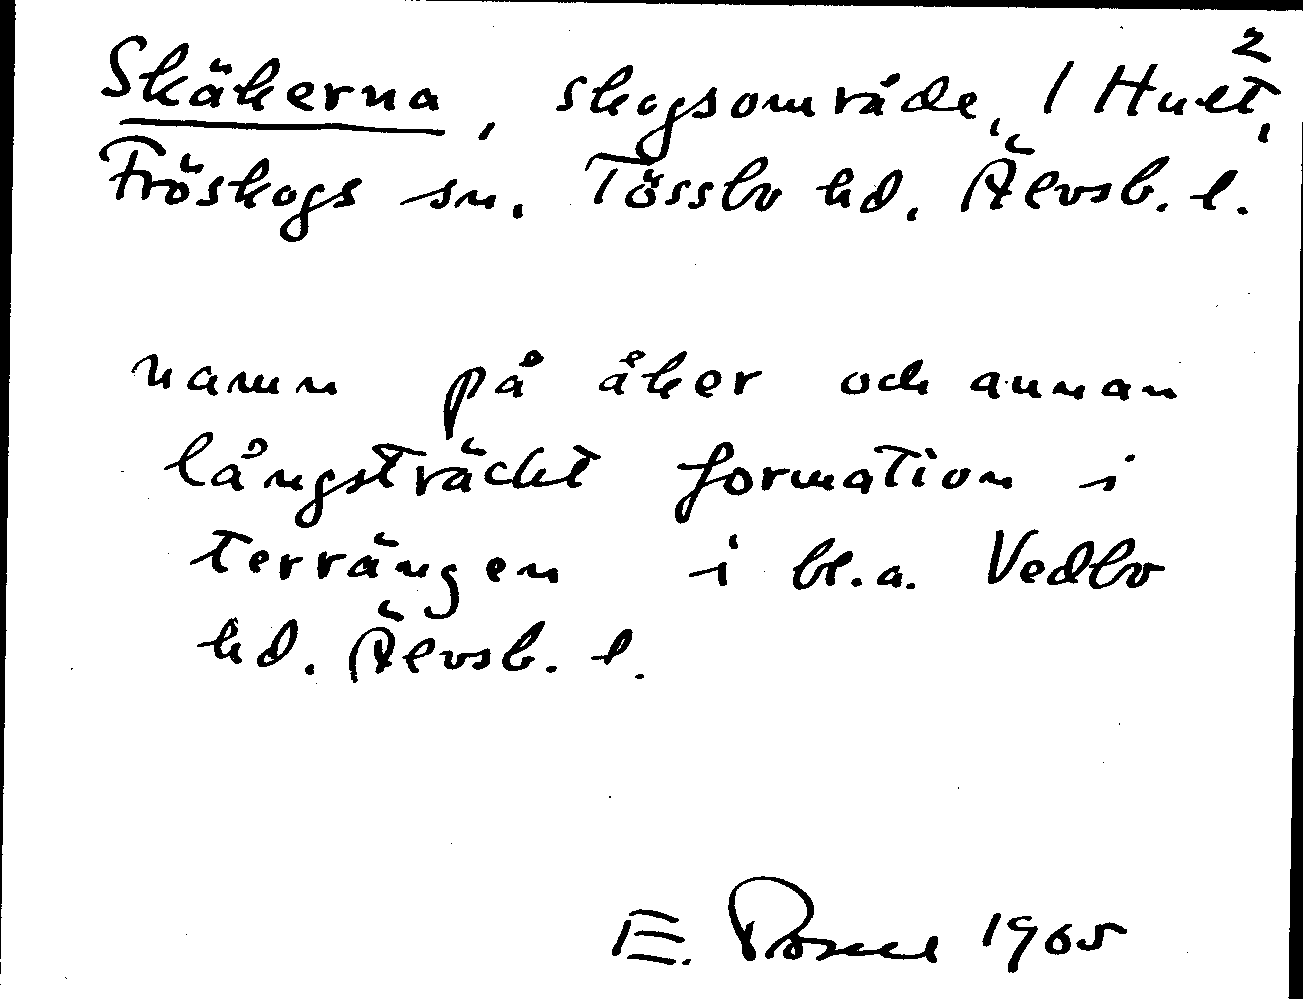 2
Skäkerna, skogsområde, 1 Hult,
Fröskogs sn. Tössbo hd. Älvsb. l.
namn på åker och annan
långsträckt formation i
terrängen i bl.a. Vedbo
hd. Älvsb. l.
E. 1965